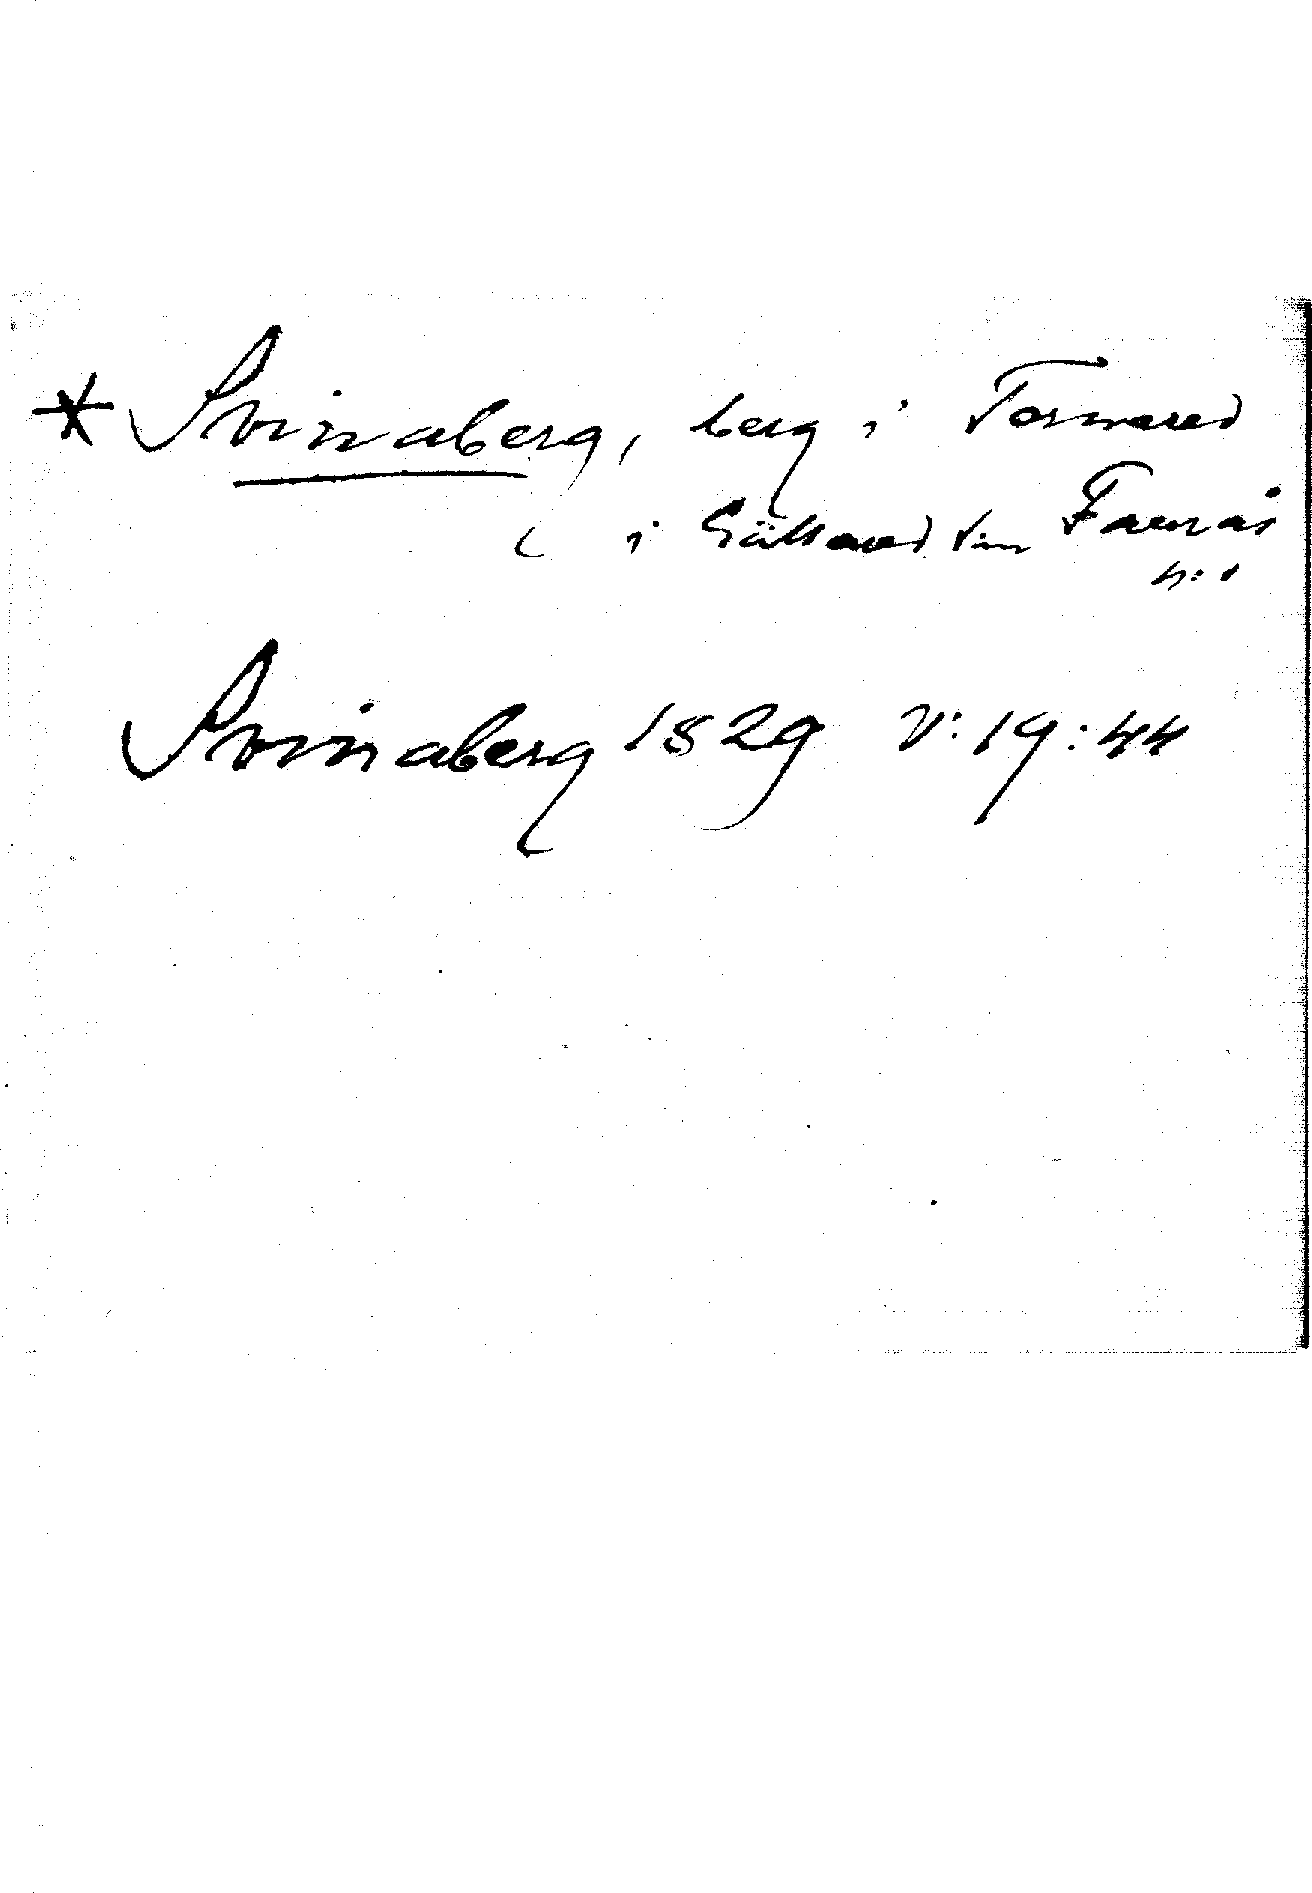 * Svinaberg, berg i Tormared
i Gällared sn Faurås
h:d
Svinaberg 1829 V:19:44